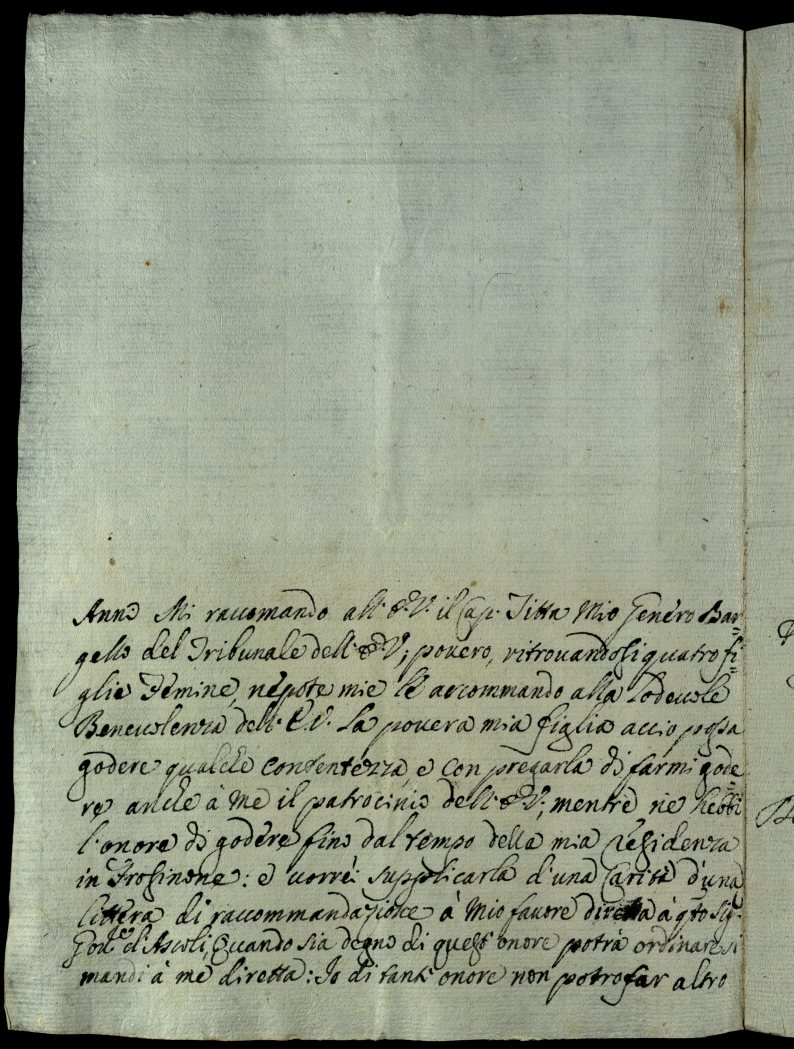 Anno Mi raccomando all'E.V. il Cap. Titta Mio Genero Bar=
gello del Tribunale dell'E.V., povero, ritrovandosi quatro fi=
glie Femine, nepote mie le accommando alla Lodevole
Benevolenza dell'E.V. La povera mia figlia accio possa
godere qualche contentezza, e con pregarla di farmi gode=
re anche à me il patrocinio dell'E.V., mentre ne hebbi
l'onore di godere fino dal tempo della mia residenza
in Frosinone: e vorrei supplicarla d'una Carità d'una
littera di raccommandazione à Mio favore diretta à q.to Sig.
Gov.re di Ascoli, Quando sia degno di quest'onore potrà ordinare si
mandi à me diretta: Io di tant'onore non potro far altro